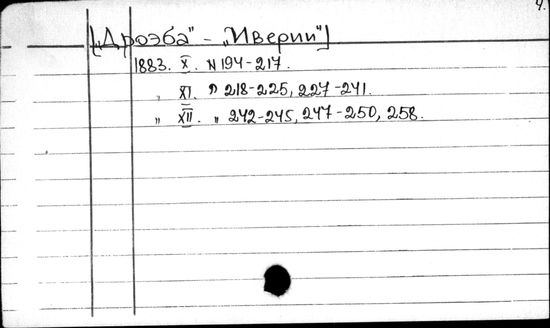 4.
["Дроэба" - "Иверии"]
1883. X. N 194-217.
„ XI. „ 218-225, 227-241.
„ XII. „ 242-245, 247-250, 258.